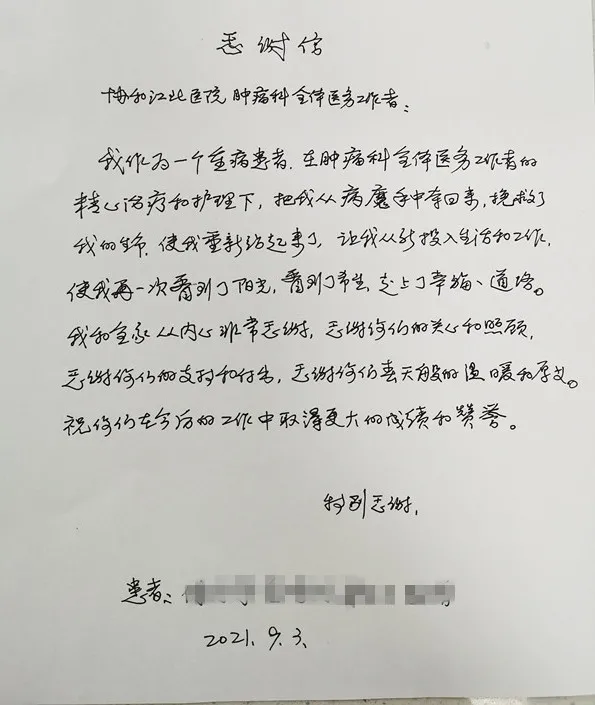 感谢信
协和江北医院肿瘤科全体医务工作者：
我作为一个重病患者，在肿瘤科全体医务工作者的
精心治疗和护理下，把我从病魔手中夺回来，挽救了
我的生命，使我重新站起来了，让我从新投入生活和工作，
使我再一次看到了阳光，看到了希望，走上了幸福、道路。
我和全家从内心非常感谢，感谢你们的关心和照顾，
感谢你们的支持和付出，感谢你们春天般的温暖和厚爱。
祝你们在今后的工作中取得更大的成绩和赞誉。
特别感谢，
患者：
2021.9.3.